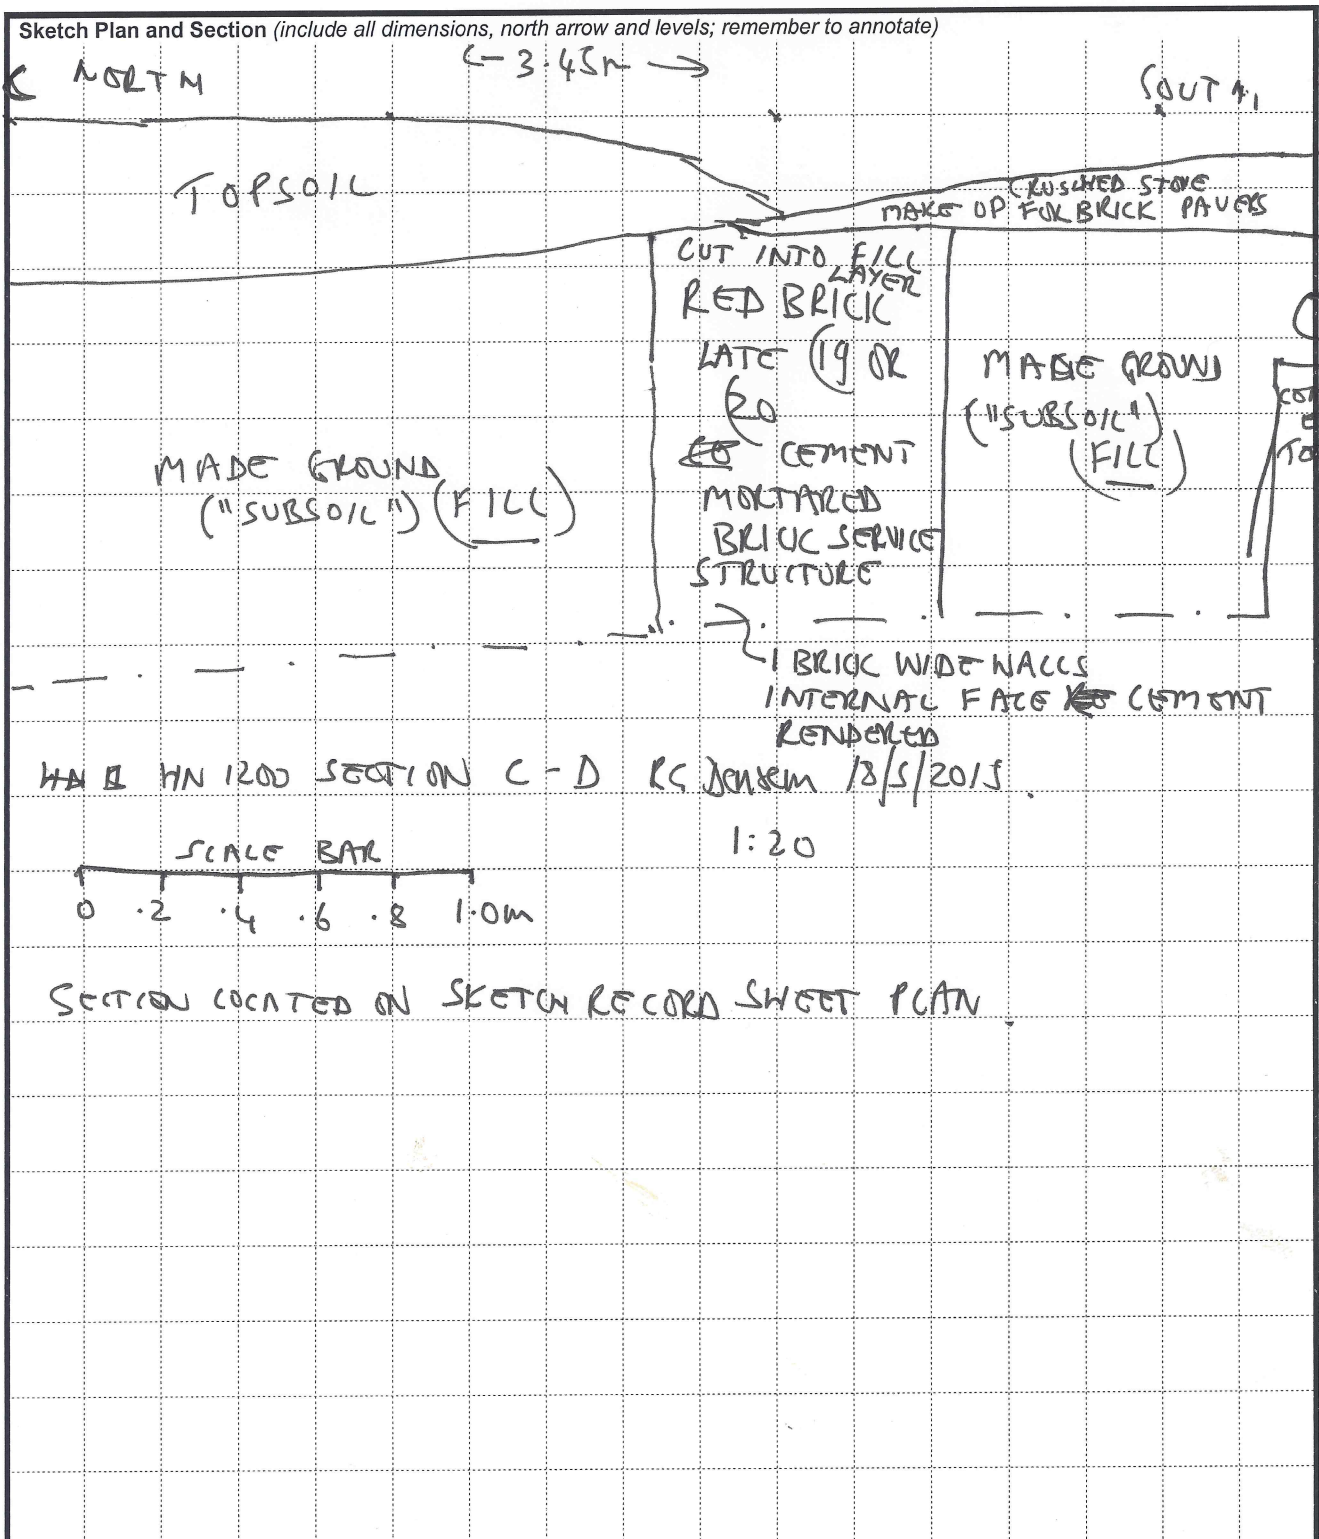 Sketch Plan and Section (include all dimensions, north arrow and levels; remember to annotate)
C NORTH
← 3.45m →
SOUTH
TOPSOIL
CRUSHED STONE
MAKE UP FOR BRICK PAVERS
CUT INTO FILL
LAYER
RED BRICK
LATE C19 OR
C20
CEMENT
MORTARED
BRICK SERVICE
STRUCTURE
MADE GROUND
("SUBSOIL")
(FILL)
MADE GROUND
("SUBSOIL") (FILL)
1 BRICK WIDE WALLS
INTERNAL FACE CEMENT
RENDERED
HN 1200 SECTION C-D RG Densem 18/5/2015.
1:20
SCALE BAR
0 .2 .4 .6 .8 1.0m
SECTION LOCATED ON SKETCH RECORD SHEET PLAN.